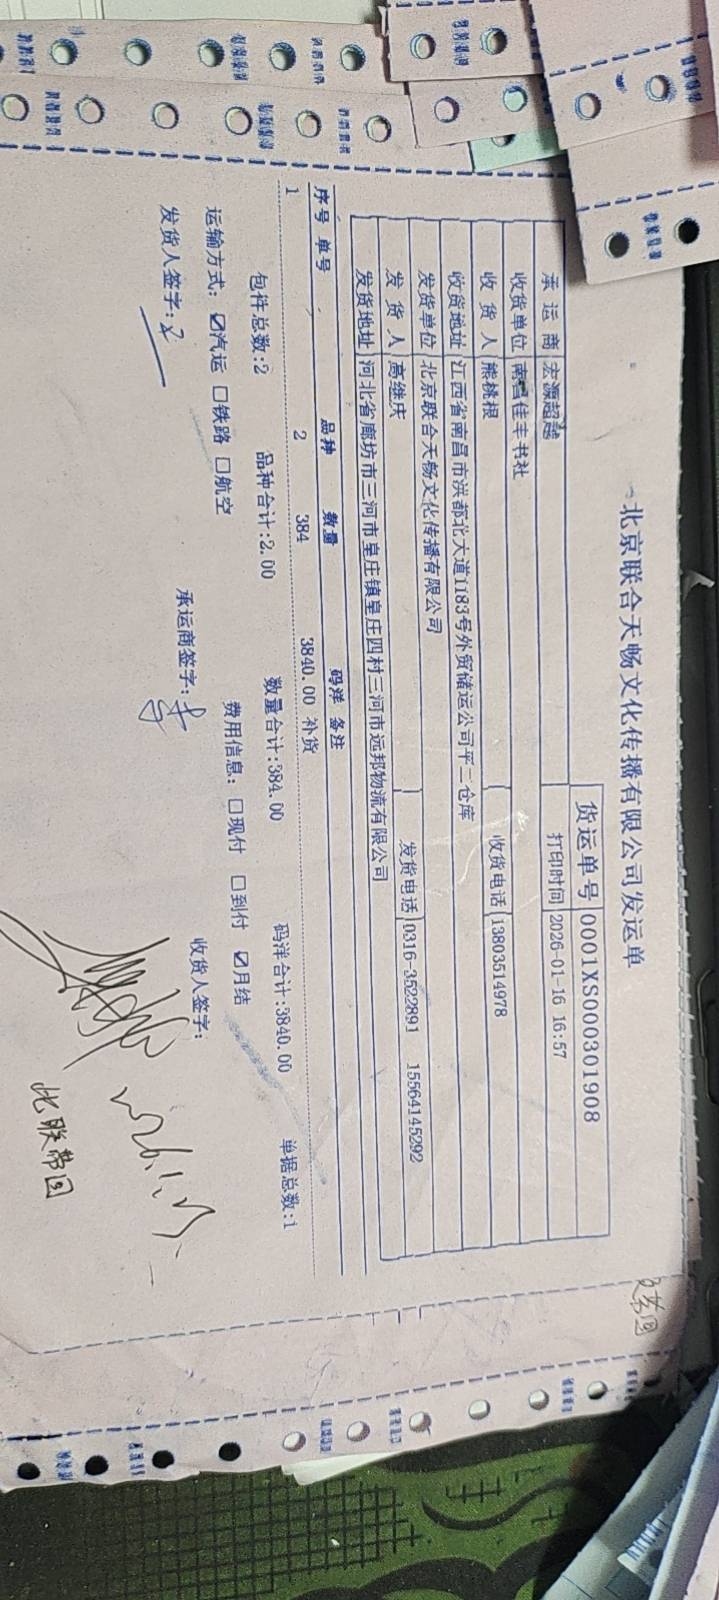 北京联合天畅文化传播有限公司发运单
货运单号 0001XS000301908
承运商 宏源超越 打印时间 2026-01-16 16:57
收货单位 南昌佳丰书社
收货人 熊桃根 收货电话 13803514978
收货地址 江西省南昌市洪都北大道1183号外贸储运公司平三仓库
发货单位 北京联合天畅文化传播有限公司
发货人 高继庆 发货电话 0316-3522891 15564145292
发货地址 河北省廊坊市三河市皇庄镇皇庄四村三河市远邦物流有限公司
序号 单号 品种 数量 码洋 备注
1 2 384 3840.00 补货
包件总数:2 品种合计:2.00 数量合计:384.00 码洋合计:3840.00 单据总数:1
运输方式: ☑汽运 ☐铁路 ☐航空 费用信息: ☐现付 ☐到付 ☑月结
发货人签字: 承运商签字: 收货人签字:
此联带回